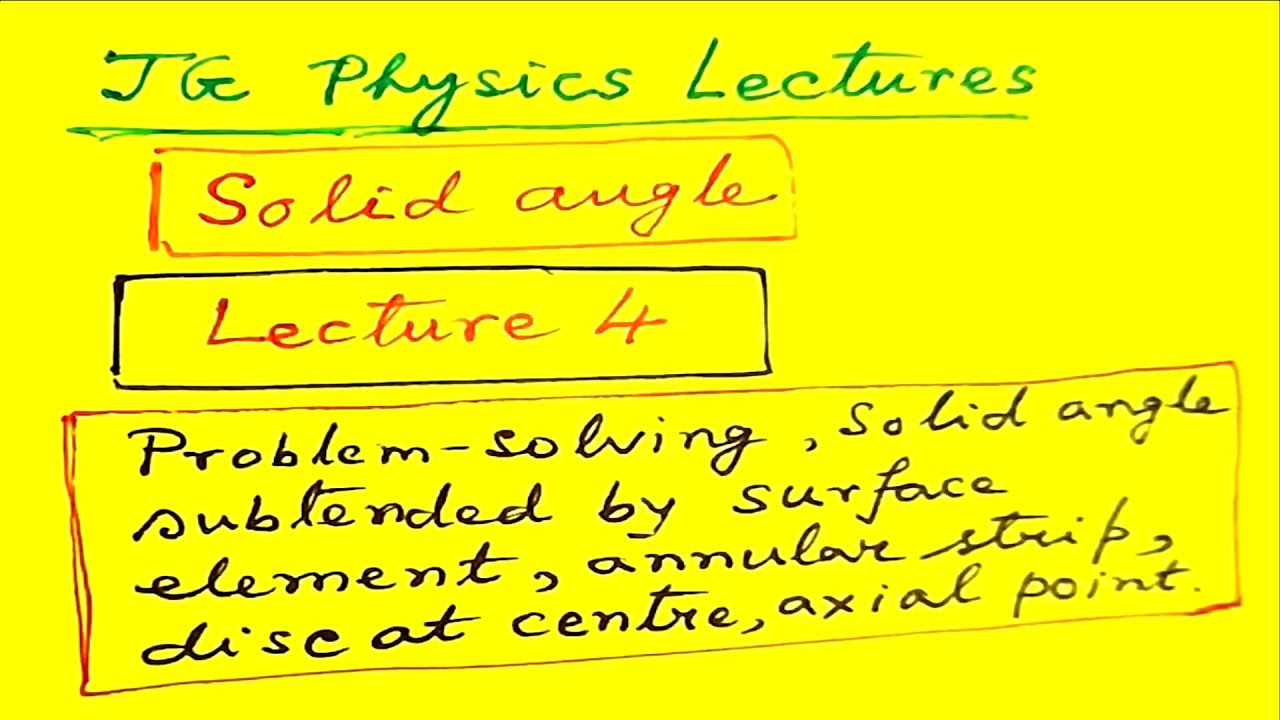 JG Physics Lectures
Solid angle
Lecture 4
Problem-solving, Solid angle
subtended by surface
element, annular strip,
disc at centre, axial point.